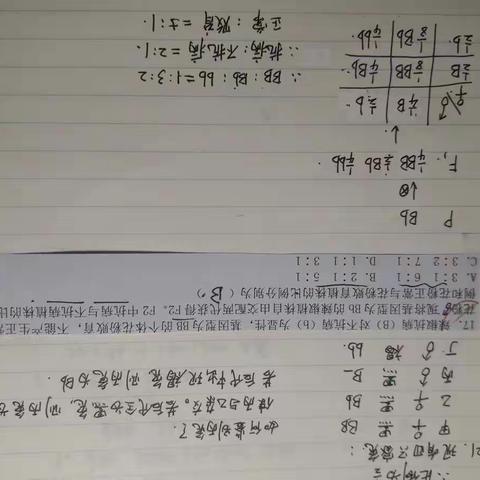 21. 现有四只家兔:
甲 ♀ 黑 BB
乙 ♀ 黑 Bb
丙 ♂ 黑 B_
丁 ♂ 褐 bb.
如何鉴别丙兔?
使丙与乙杂交。若后代全为黑兔,则丙兔为
若后代出现褐兔,则丙兔为Bb.
17. 辣椒抗病(B)对不抗病(b)为显性,基因型为BB的个体花粉败育,不能产生正常
花粉。现将基因型为Bb的辣椒植株自由交配两代获得F2。F2中抗病与不抗病植株的比
例和花粉正常与花粉败育植株的比例分别为( B )
A. 3∶1 6∶1 B. 2∶1 5∶1
C. 3∶2 7∶1 D. 1∶1 3∶1
P Bb
↓⊗
F₁ ¼BB ½Bb ¼bb.
↓
∴ BB:Bb:bb=1:3:2
∴ 抗病:不抗病=2:1.
正常:败育=5:1.